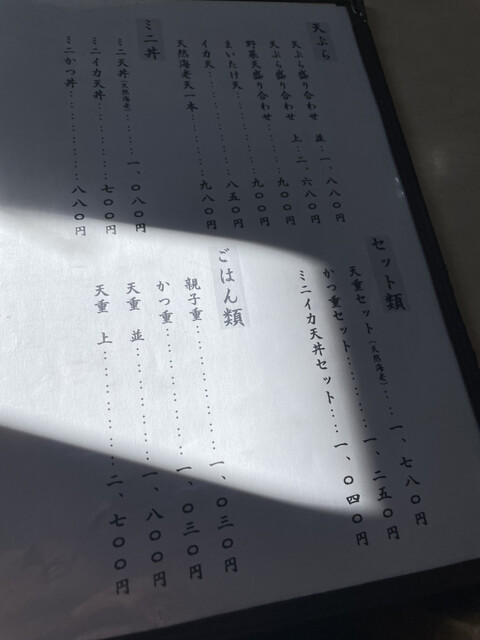 天ぷら
天ぷら盛り合わせ 並‥一、八八〇円
天ぷら盛り合わせ 上‥二、六八〇円
野菜天盛り合わせ‥‥‥‥九〇〇円
まいたけ天‥‥‥‥‥‥八五〇円
イカ天‥‥‥‥‥‥‥‥九八〇円
天然海老天一本‥‥‥‥‥九八〇円
ミニ丼
ミニ天丼(天然海老)‥‥‥一、〇八〇円
ミニイカ天丼‥‥‥‥‥七〇〇円
ミニかつ丼‥‥‥‥‥‥八八〇円
セット類
天重セット(天然海老)‥‥一、七八〇円
かつ重セット‥‥‥‥‥一、二五〇円
ミニイカ天丼セット‥‥一、〇四〇円
ごはん類
親子重‥‥‥‥‥‥‥‥一、〇三〇円
かつ重‥‥‥‥‥‥‥‥一、〇三〇円
天重 並‥‥‥‥‥‥‥一、八〇〇円
天重 上‥‥‥‥‥‥‥二、七〇〇円